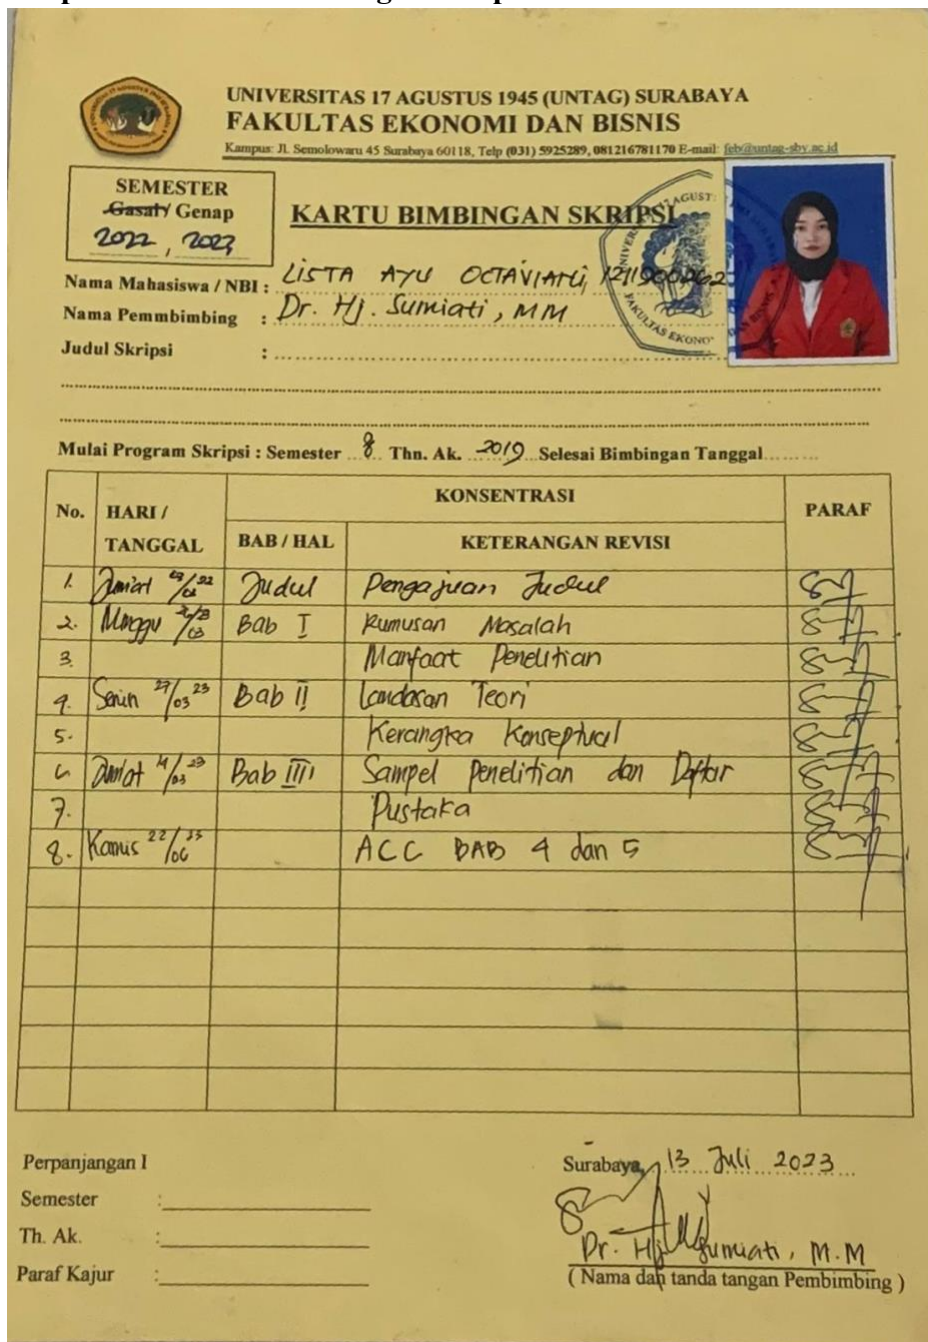 UNIVERSITAS 17 AGUSTUS 1945 (UNTAG) SURABAYA
FAKULTAS EKONOMI DAN BISNIS
Kampus: Jl. Semolowaru 45 Surabaya 60118, Telp (031) 5925289, 081216781170 E-mail: feb@untag-sby.ac.id
SEMESTER
Gasal / Genap
2022, 2023
KARTU BIMBINGAN SKRIPSI
Nama Mahasiswa / NBI : LISTA AYU OCTAVIANI,
Nama Pemmbimbing : Dr. Hj. Sumiati, MM
Judul Skripsi :
Mulai Program Skripsi : Semester 8 Thn. Ak. 2019 Selesai Bimbingan Tanggal
No. HARI / TANGGAL KONSENTRASI PARAF
BAB / HAL KETERANGAN REVISI
1. Judul Pengajuan Judul
2. Minggu Bab I Rumusan Masalah
3. Manfaat Penelitian
4. Senin 27/03 23 Bab II Landasan Teori
5. Kerangka Konseptual
6. Bab III Sampel Penelitian dan Daftar
7. Pustaka
8. Kamis 22/06 23 ACC BAB 4 dan 5
Perpanjangan I
Semester :
Th. Ak. :
Paraf Kajur :
Surabaya, 13 Juli 2023
Dr. Hj. Sumiati, M.M
( Nama dan tanda tangan Pembimbing )